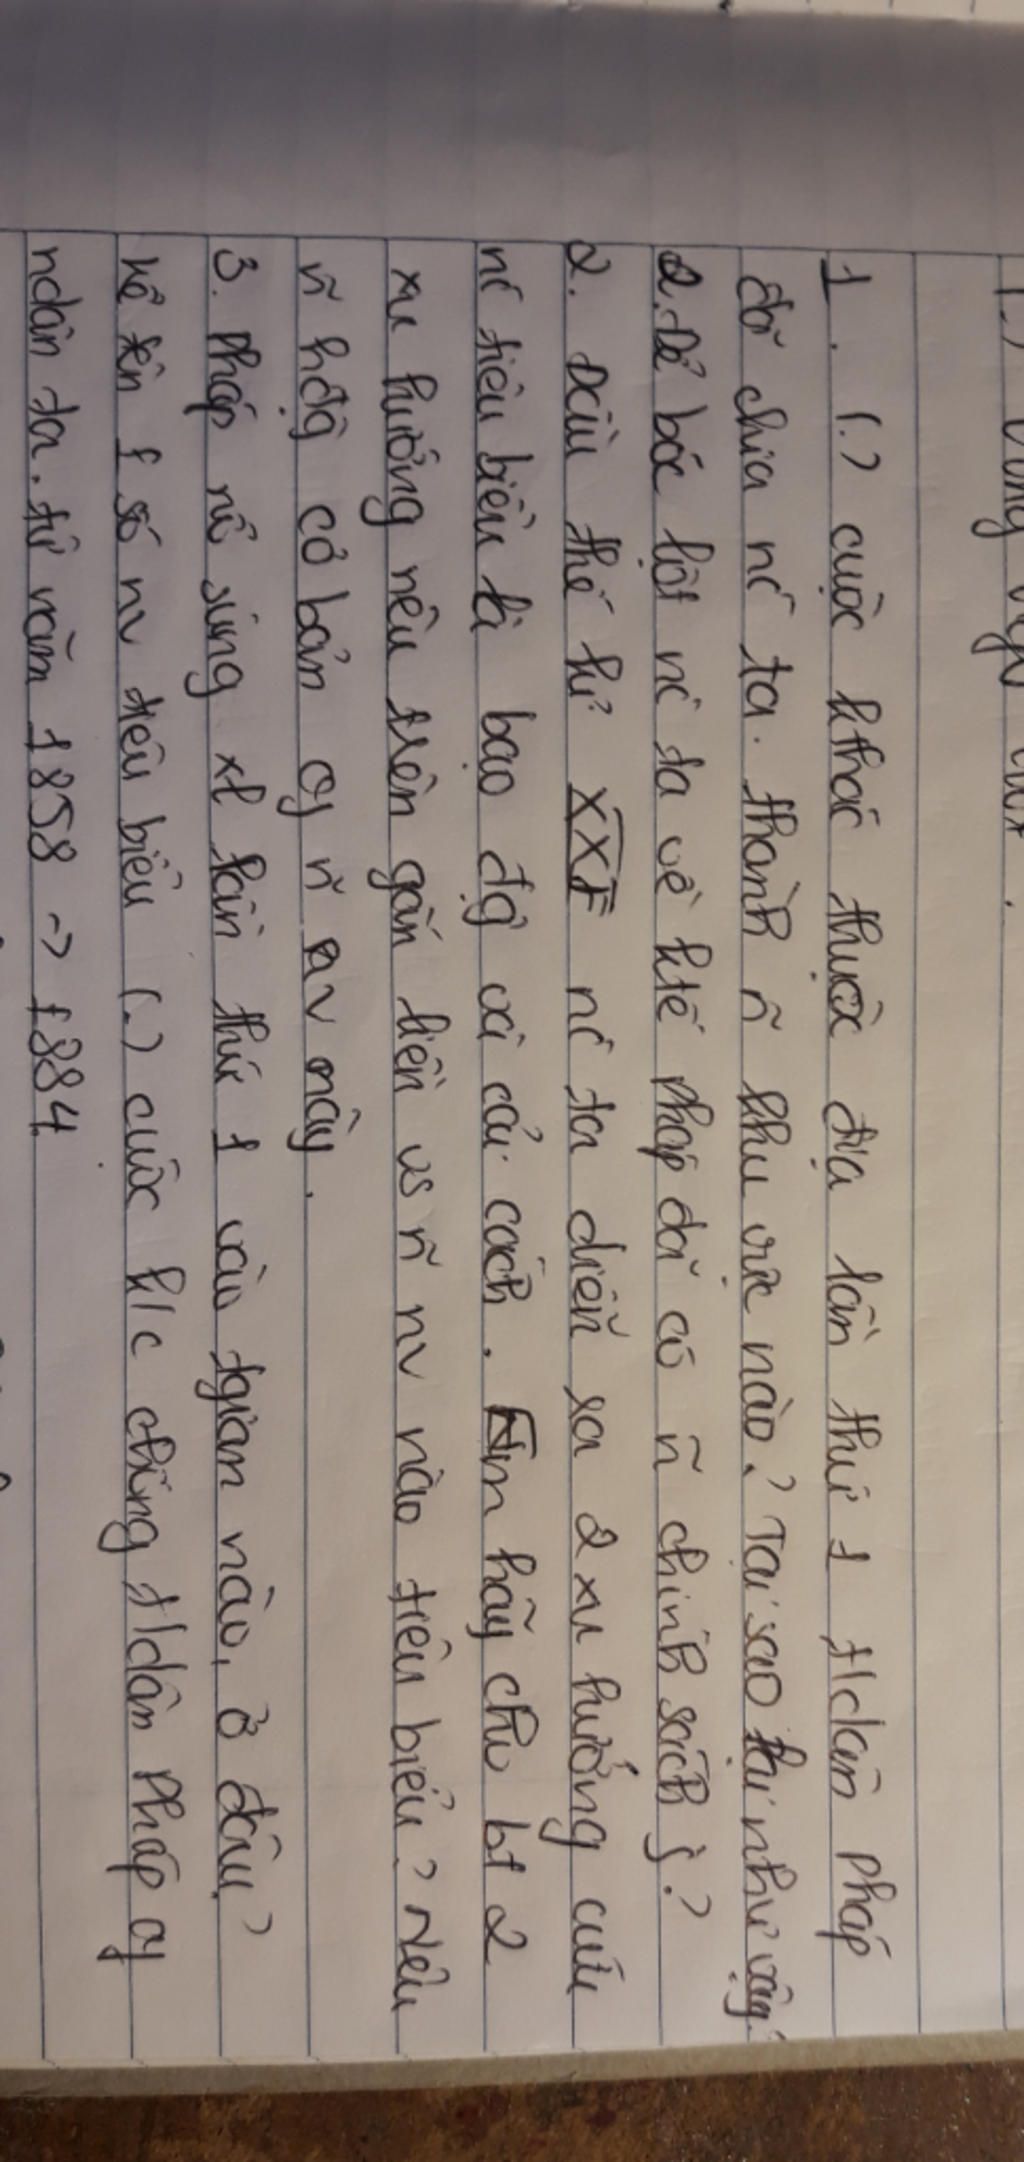 1. (.) cuộc kthác thuộc địa lần thứ 1 t/dân pháp
đã chia nc ta. thành ~n khu vực nào? Tại sao lại như vậy?
2. Để bóc lột nc ta về ktế pháp đã có ~n chính sách j?
2. Đầu thế kỉ XX nc ta diễn ra 2 xu hướng cứu
nc tiêu biểu là bạo độg và cải cách. Em hãy cho bt 2
xu hướng nêu trên gắn liền vs ~n nv nào tiêu biểu? Nêu
~n hđộg cơ bản of ~n nv này.
3. Pháp nổ súng xl lần thứ 1 vào tgian nào, ở đâu?
kể tên 1 số nv tiêu biểu (.) cuộc k/c chống t/dân Pháp of
ndân ta. từ năm 1858 -> 1884